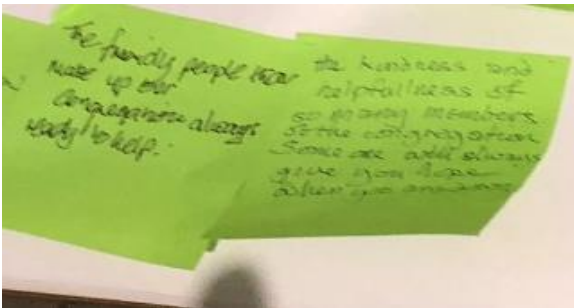 The friendly people
make up our
congregation always
ready to help.
the kindness and
helpfullness of
so many members
of the congregation
Some one will always
give you hope
when you